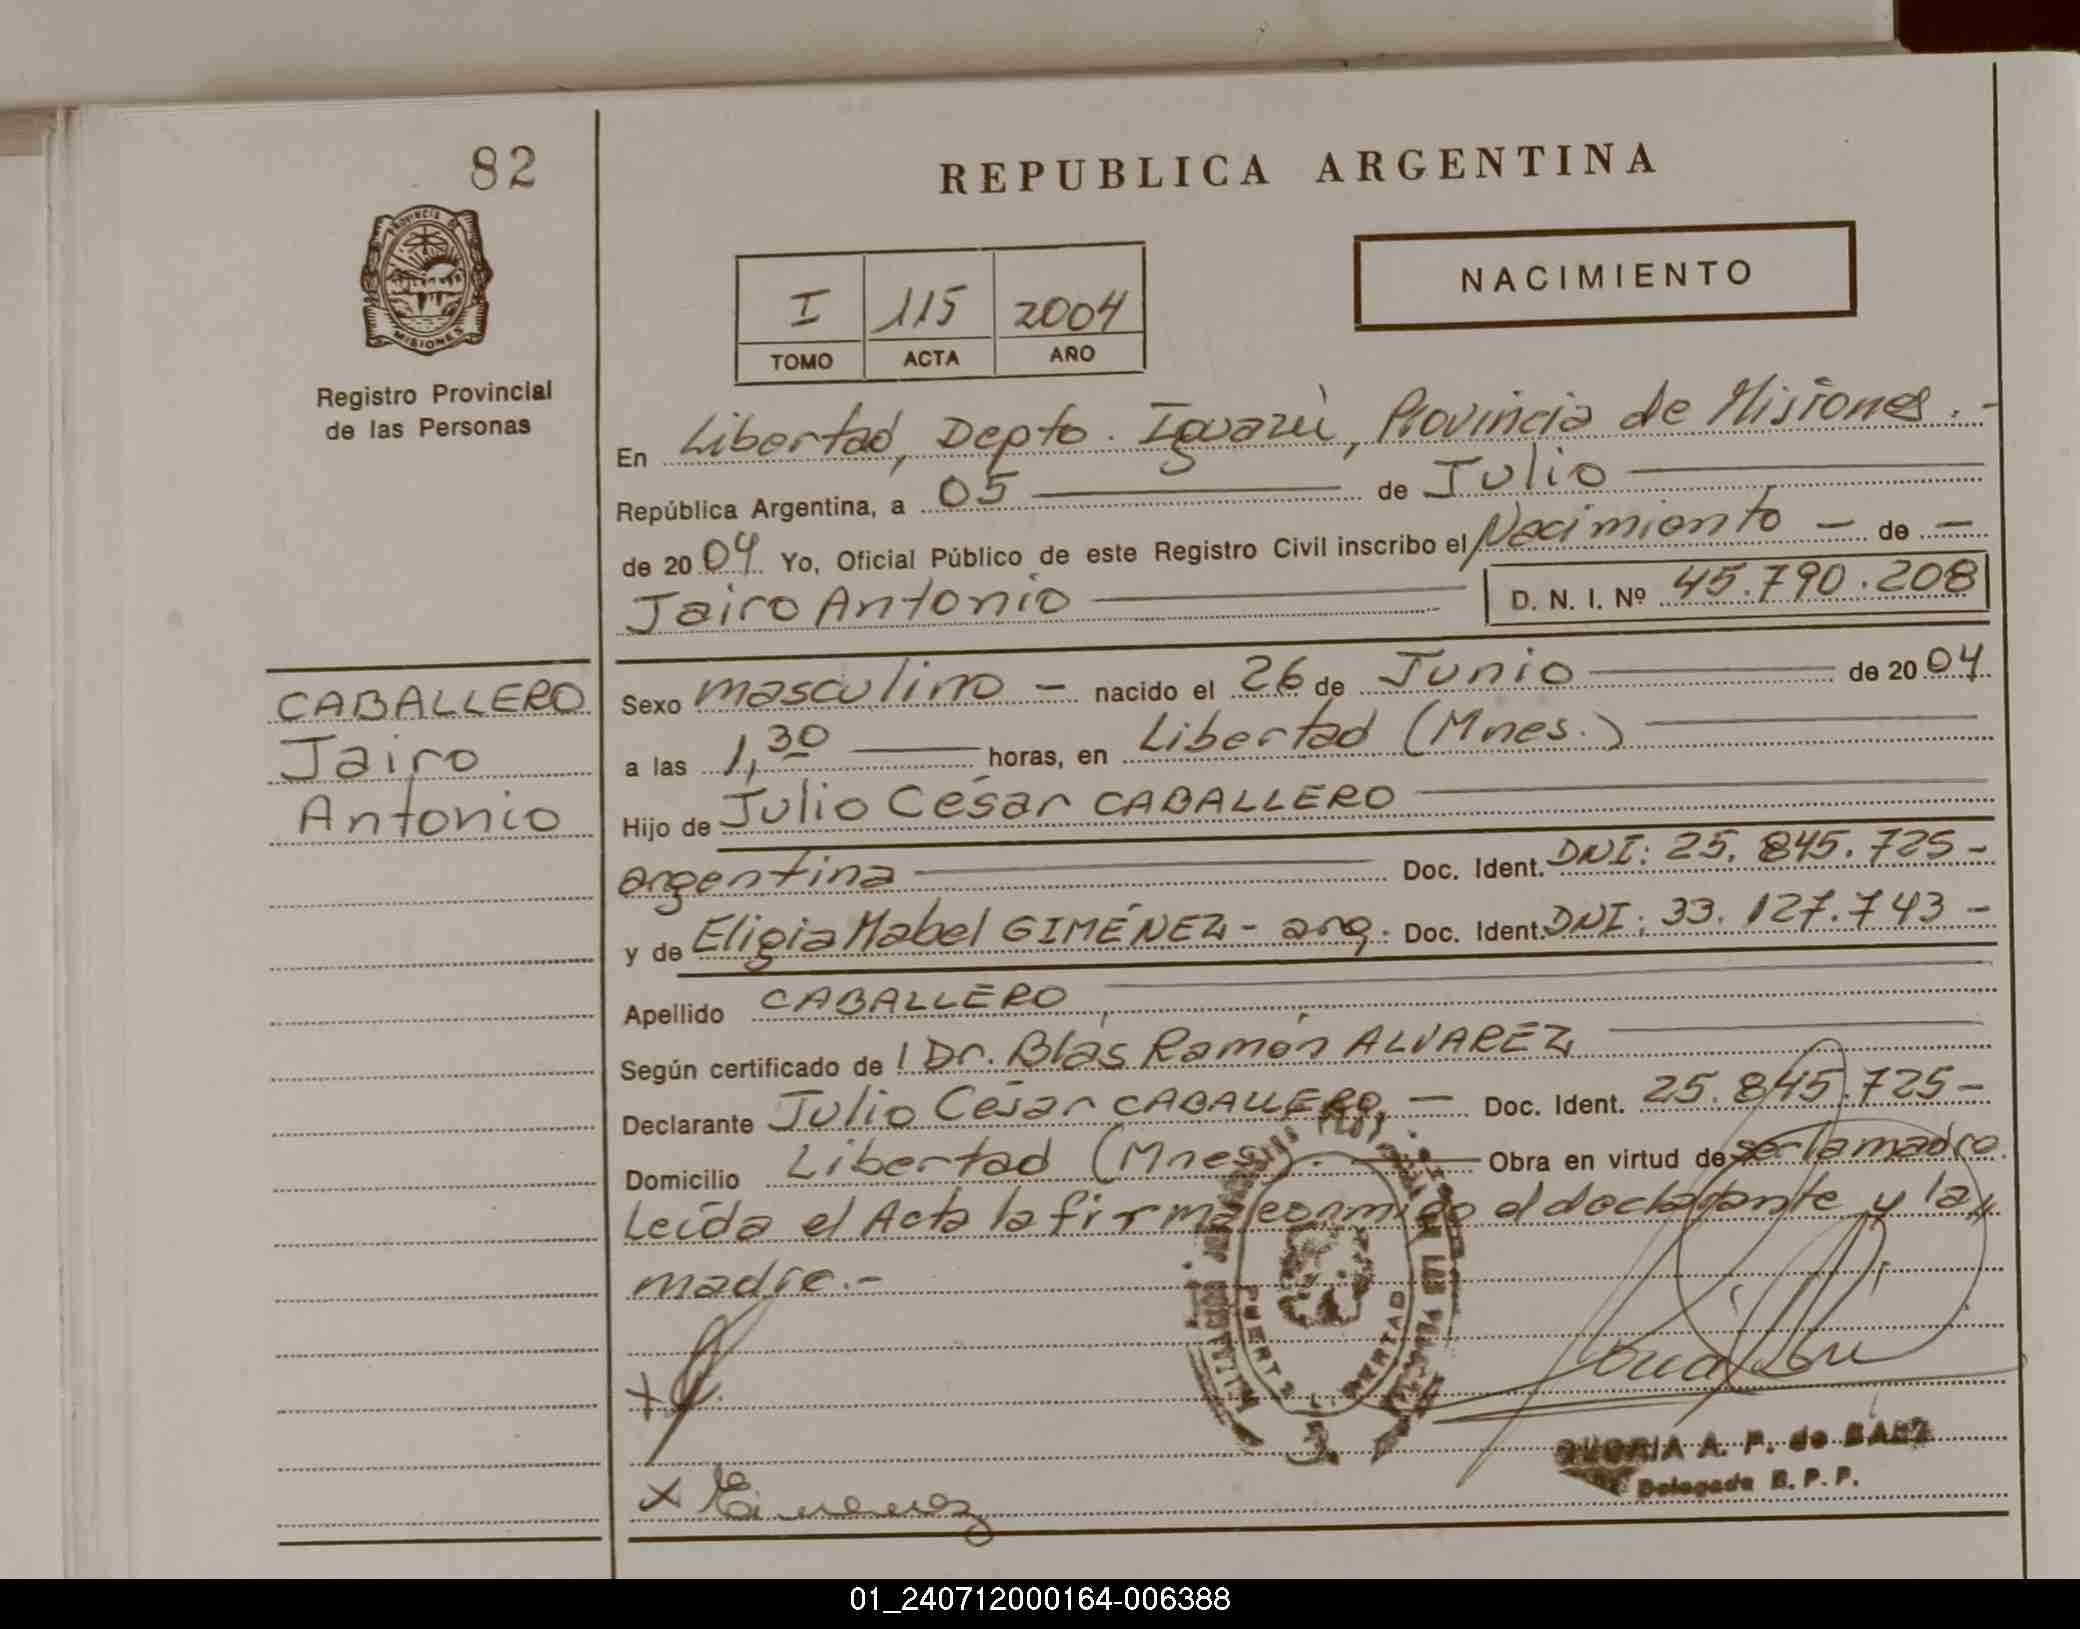 82
REPUBLICA ARGENTINA
PROVINCIA DE
MISIONES
Registro Provincial
de las Personas
NACIMIENTO
I 115 2004
TOMO ACTA AÑO
En Libertad, Depto. Iguazú, Provincia de Misiones.-
República Argentina, a 05 de Julio
de 2004 Yo, Oficial Público de este Registro Civil inscribo el Nacimiento - de -
Jairo Antonio D. N. I. Nº 45.790.208
CABALLERO
Jairo
Antonio
Sexo masculino - nacido el 26 de Junio de 2004
a las 1,30 horas, en Libertad (Mnes.)
Hijo de Julio César CABALLERO
argentina Doc. Ident. DNI: 25.845.725-
y de Eligia Mabel GIMÉNEZ - arg. Doc. Ident. DNI: 33.127.743-
Apellido CABALLERO
Según certificado de l Dr. Blás Ramón ALVAREZ
Declarante Julio César CABALLERO, - Doc. Ident. 25.845.725-
Domicilio Libertad (Mnes). Obra en virtud de ser la madre
Leída el Acta la firma conmigo el declarante y la
madre.-
PUERTO LIBERTAD
x
x Gimenez
A. P. de BAEZ
Delegada R. P. P.
01_240712000164-006388